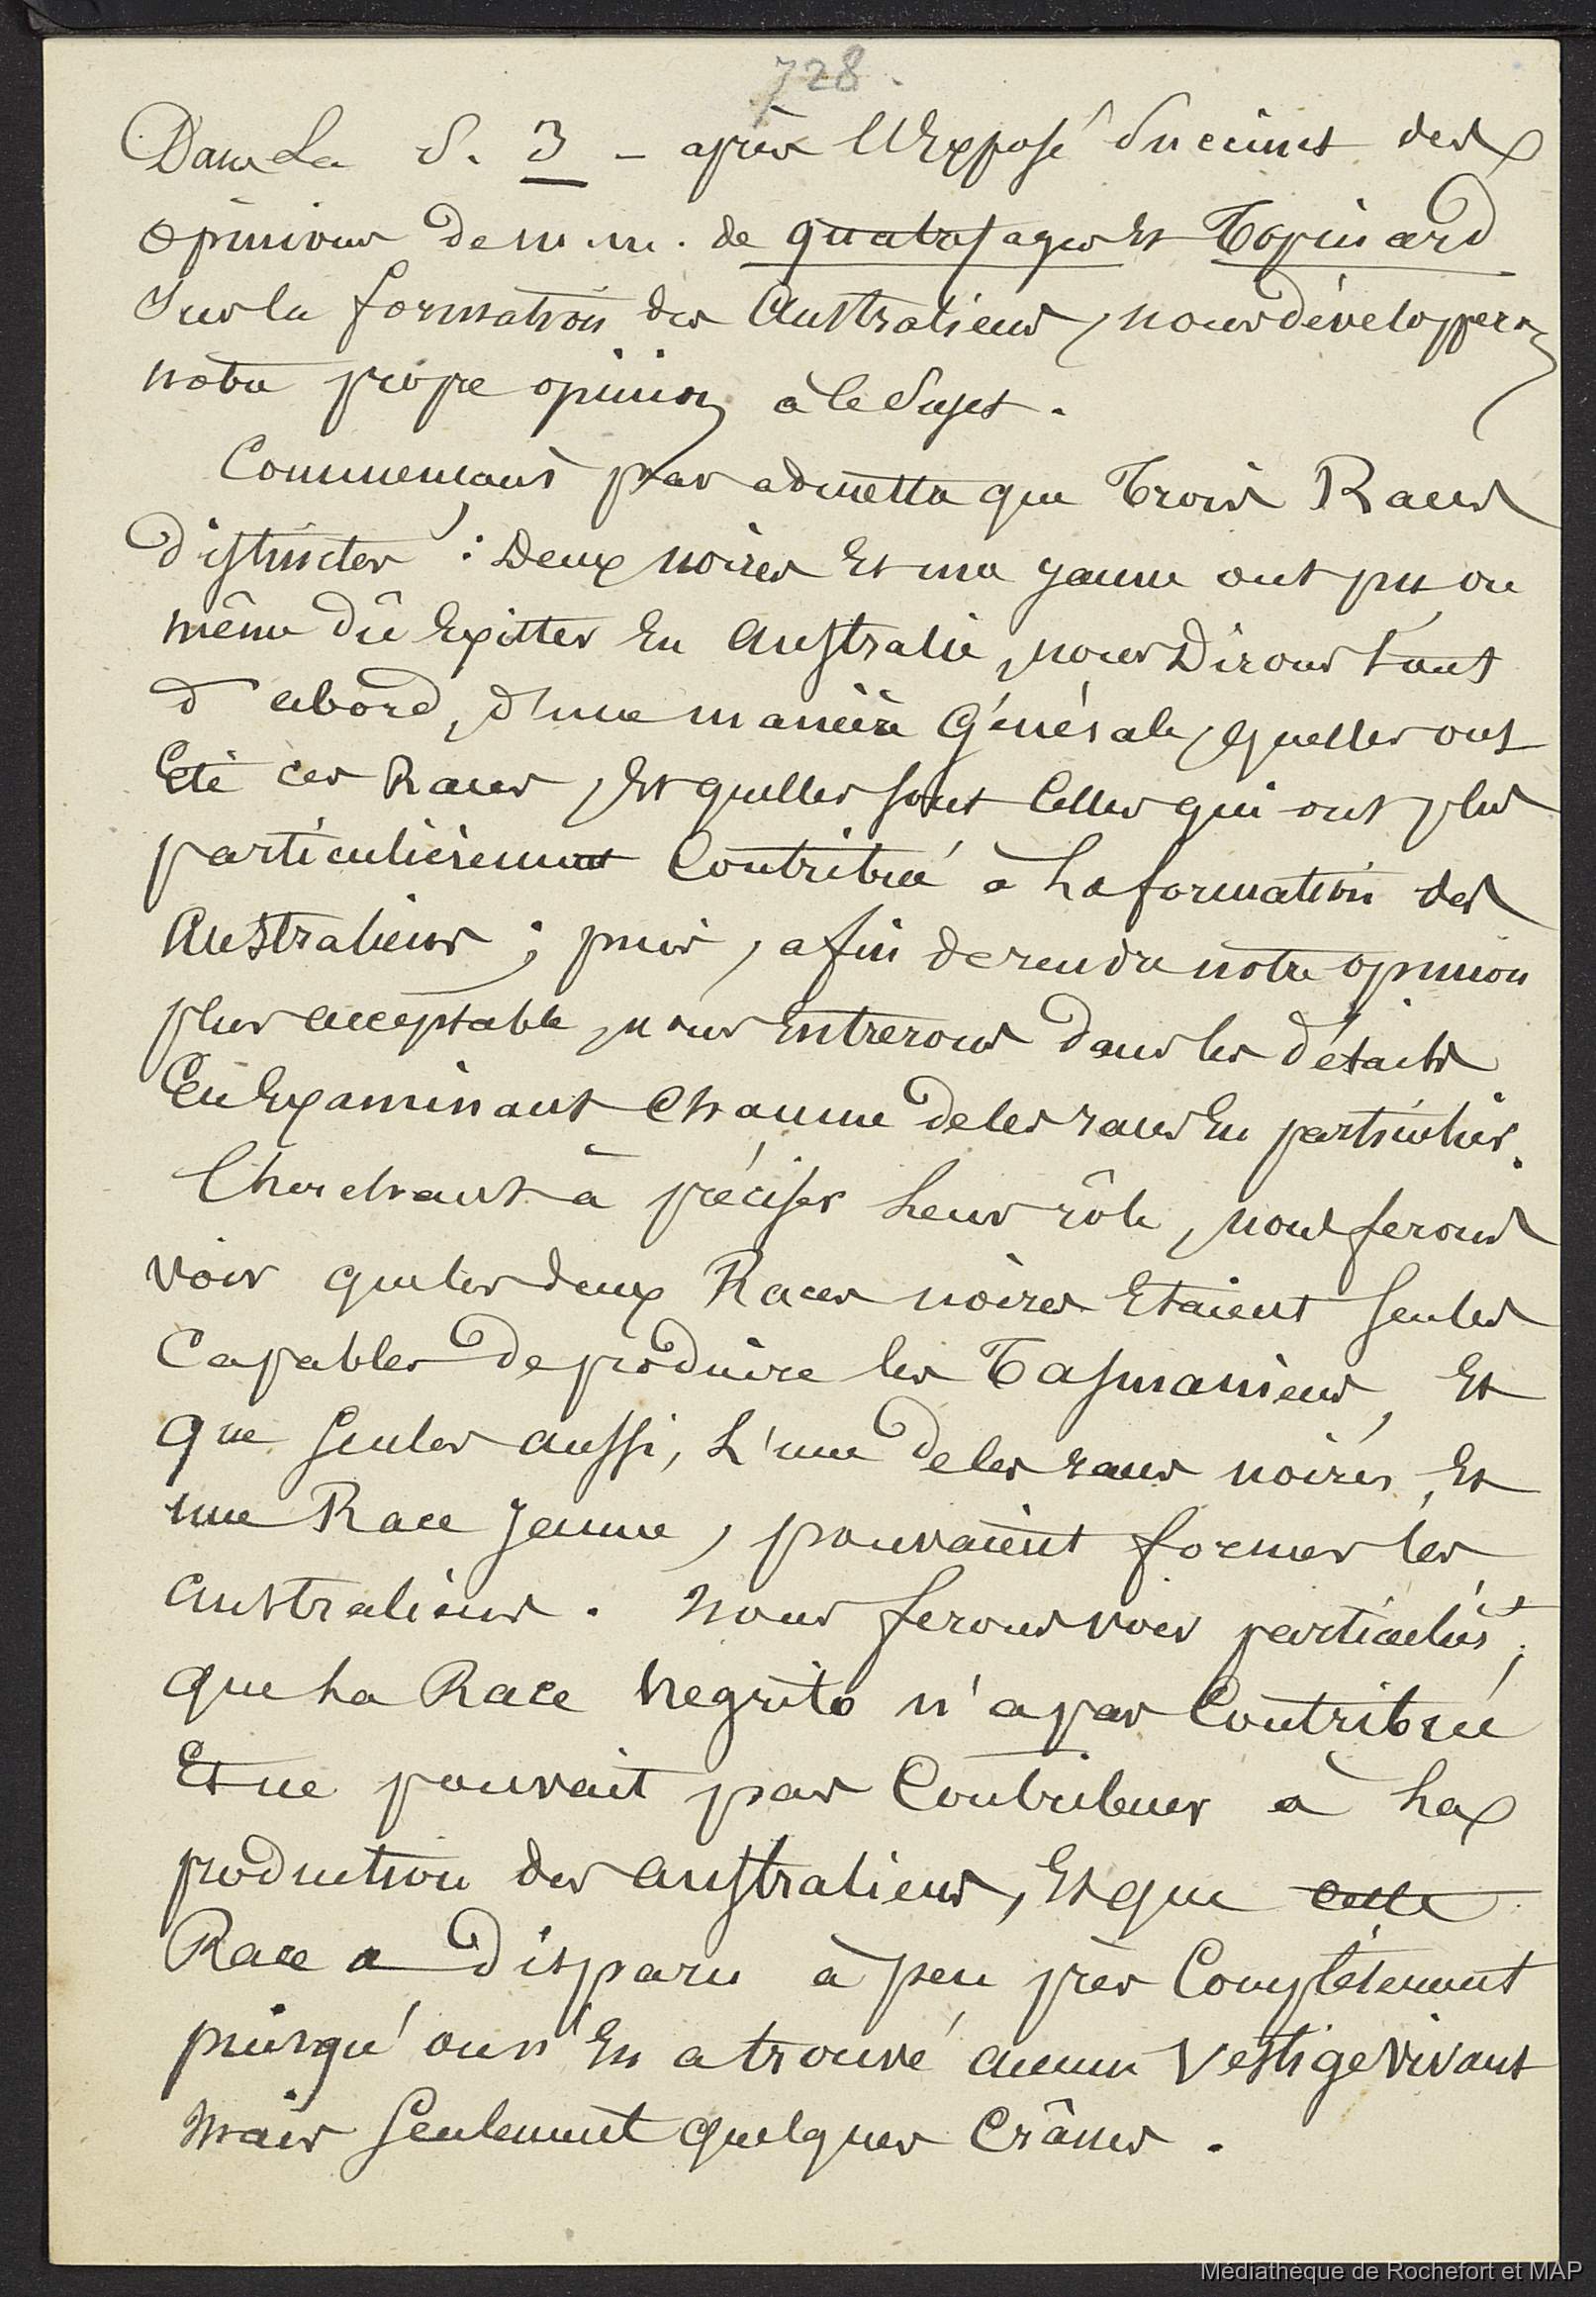 728.
Dans La S. 3 - après l'Exposé Succinct des
opinions de m.m. de quatrefages Et Topinard
Sur la formation des Australiens, nous développerons
notre propre opinion à ce Sujet.
Commençant par admettre que Trois Races
distinctes : Deux noires Et une jaune ont pu ou
même dû Exister En Australie, nous Dirons tout
d'abord, d'une manière Générale, quelles ont
Eté ces Races, Et quelles sont Celles qui ont plus
particulièrement Contribué à La formation des
Australiens ; puis, afin de rendre notre opinion
plus acceptable, nous Entrerons dans les détails
En Examinant Chacune de ces races En particulier.
Cherchant à préciser Leur rôle, nous ferons
voir que les deux Races noires Etaient Seules
Capables de produire les Tasmaniens, Et
que Seules aussi, L'une de ces races noires, Et
une Race Jaune, pouvaient former les
Australiens. Nous ferons voir particulièrt,
que La Race Negrito n'a pas Contribué
Et ne pouvait pas Contribuer à La
production des Australiens, Et que cette
Race a Disparu à peu près Complètement
puisqu'on n'En a trouvé aucun Vestige Vivant
Mais Seulement quelques Crânes.
Médiathèque de Rochefort et MAP